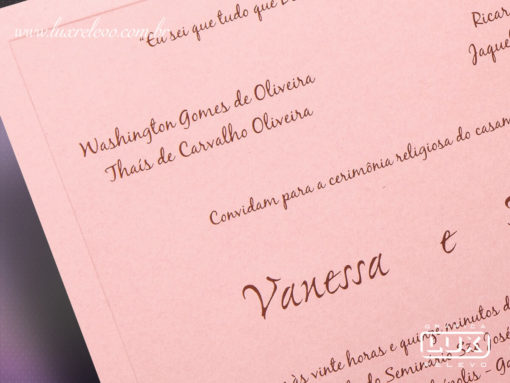 www.luxrelevo.com.br
"Eu sei que tudo que
Ricar
Jaque
Washington Gomes de Oliveira
Thaís de Carvalho Oliveira
Convidam para a cerimônia religiosa do casam
Vanessa e
às vinte horas e quinze minutos d
do Seminário São José
GRÁFICA
LUX
RELEVO